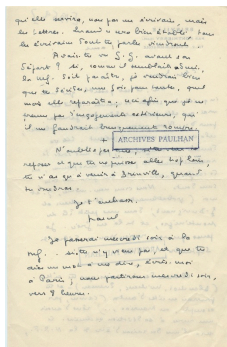 qu'elle servira, non pas un écrivain, mais
les Lettres. Quand ce sera bien établi, tous
les écrivains
Avais-tu vu G. G. avant son
départ ? Si, comme il semblerait, aussi
la nrf. doit paraître, je voudrais bien
que tu saches, une fois pour toutes, quel
mois elle reparaîtra ; cela afin que je ne
prenne pas d'engagements extérieurs, qu'
il me faudrait brusquement rompre.
+
ARCHIVES PAULHAN
N'oublie pas
repos et que tu ne puisses aller trop loin,
tu n'as qu'à venir à Brinville, quand
tu voudras.
Je t'embrasse,
Je passerai mercredi soir à la
nrf. - si tu n'y viens pas, et que tu
aies un mot à me dire, écris-moi
à Paris ; nous partirons mercredi soir,
vers 8 heures.